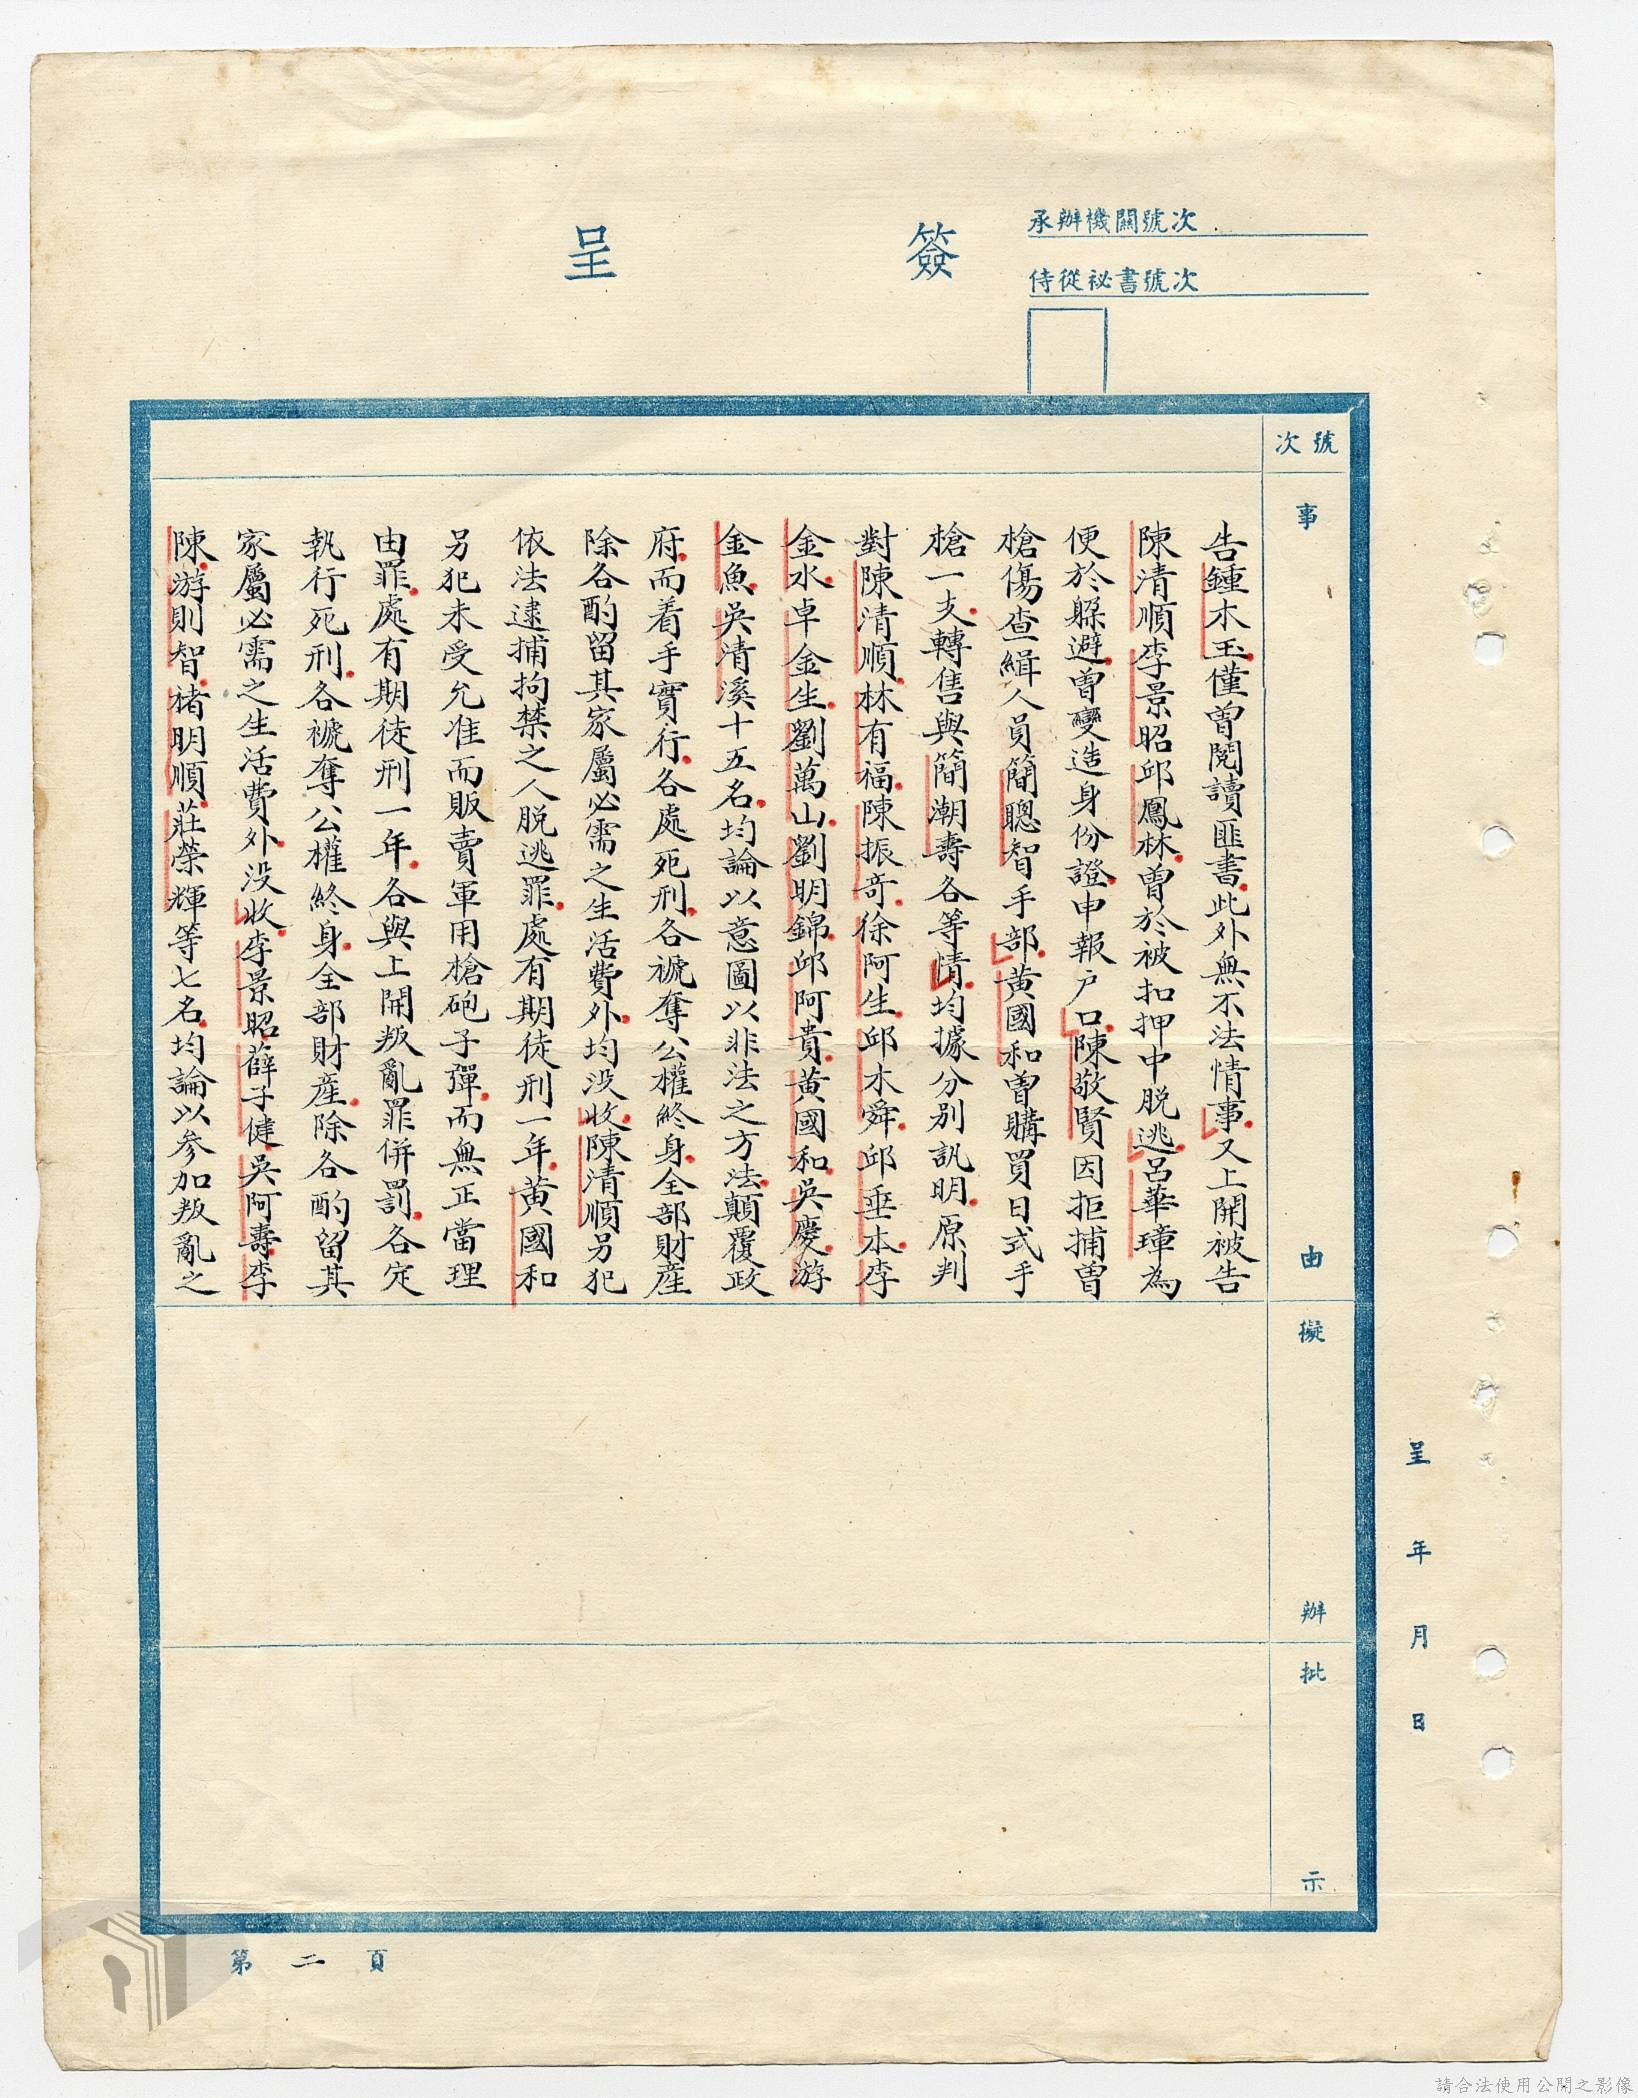 簽呈
承辦機關號次
侍從祕書號次
號次
事由
告鍾木玉僅曾閱讀匪書此外無不法情事又上開被告
陳清順李景昭邱鳳林曾於被扣押中脫逃呂華璋為
便於躲避曾變造身份證申報戶口陳敬賢因拒捕曾
槍傷查緝人員簡聰智手部黃國和曾購買日式手
槍一支轉售與簡潮壽各等情均據分別訊明原判
對陳清順林有福陳振奇徐阿生邱木舜邱垂本李
金水卓金生劉萬山劉明錦邱阿貴黃國和吳慶游
金魚吳清溪十五名均論以意圖以非法之方法顛覆政
府而着手實行各處死刑各褫奪公權終身全部財產
除各酌留其家屬必需之生活費外均沒收陳清順另犯
依法逮捕拘禁之人脫逃罪處有期徒刑一年黃國和
另犯未受允准而販賣軍用槍砲子彈而無正當理
由罪處有期徒刑一年各與上開叛亂罪併罰各定
執行死刑各褫奪公權終身全部財產除各酌留其
家屬必需之生活費外沒收李景昭薛子健吳阿壽李
陳游則智褚明順莊榮輝等七名均論以參加叛亂之
擬辦
批示
呈 年 月 日
第二頁
請合法使用公開之影像